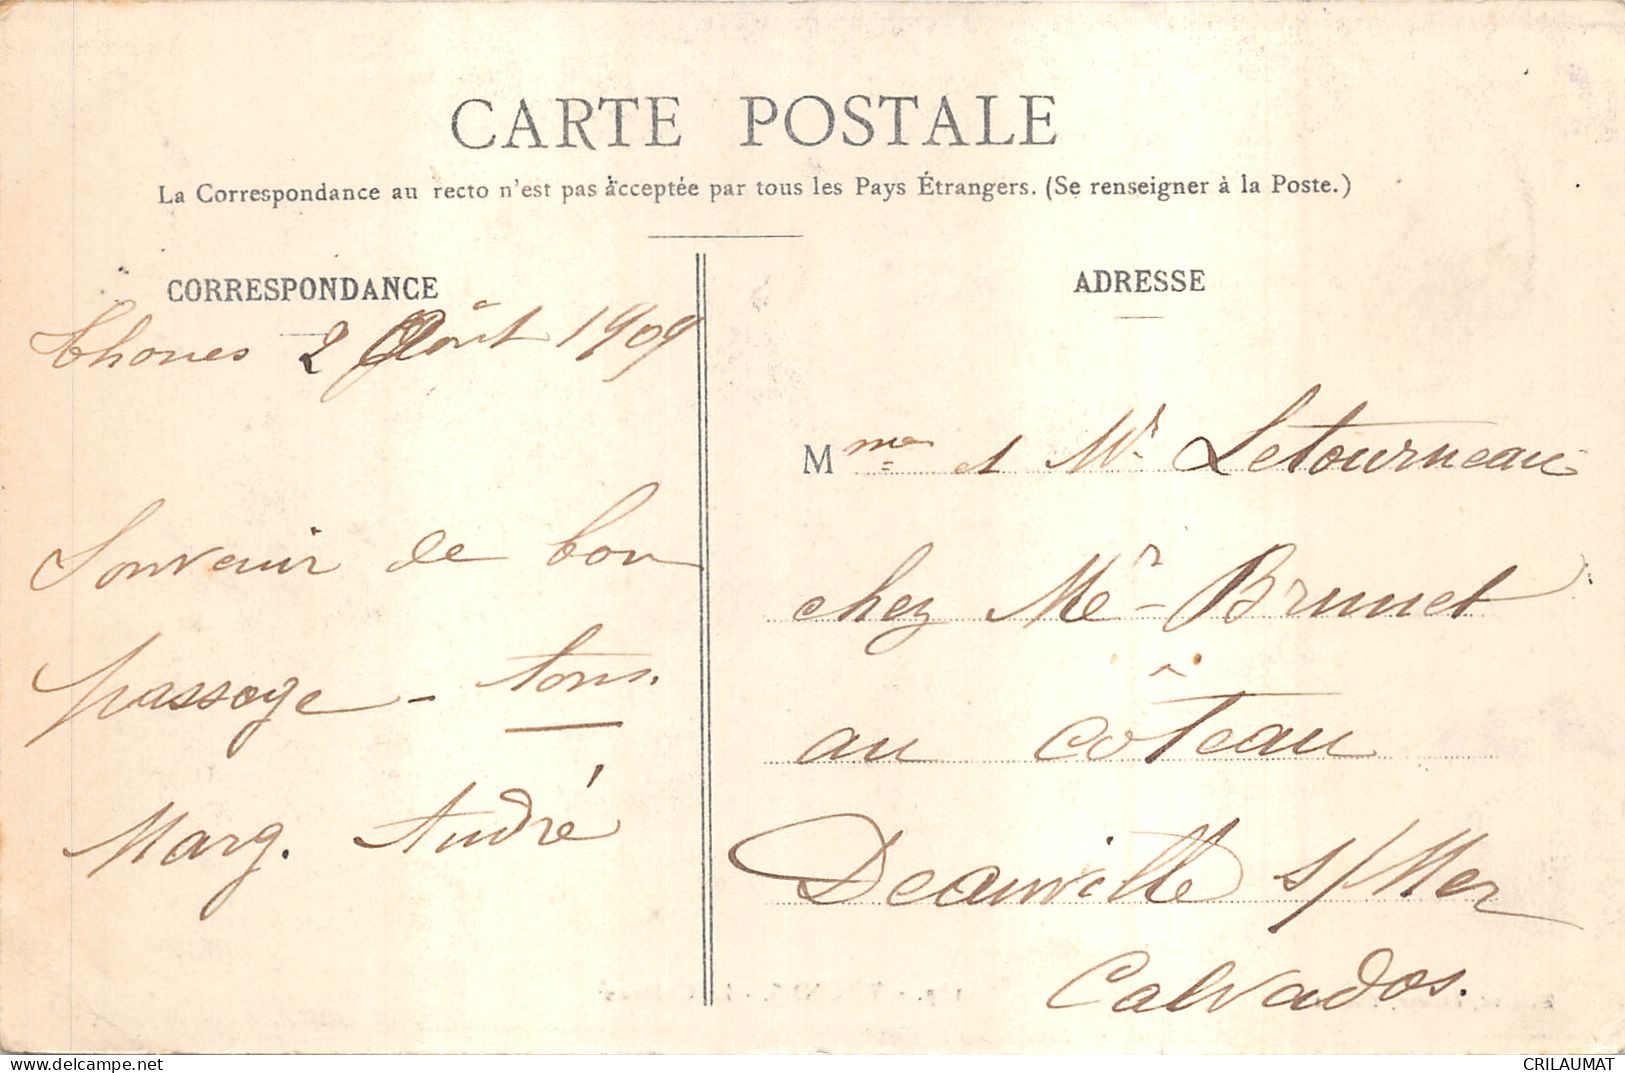 CARTE POSTALE
La Correspondance au recto n'est pas acceptée par tous les Pays Étrangers. (Se renseigner à la Poste.)
CORRESPONDANCE
Thones 2 Août 1909
Souvenir de bon
passage - tous.
Marg. André
ADRESSE
Mme et Mr Letourneau
chez Mr Brunet
au côteau
Deauville s/Mer
Calvados.
CRILAUMAT